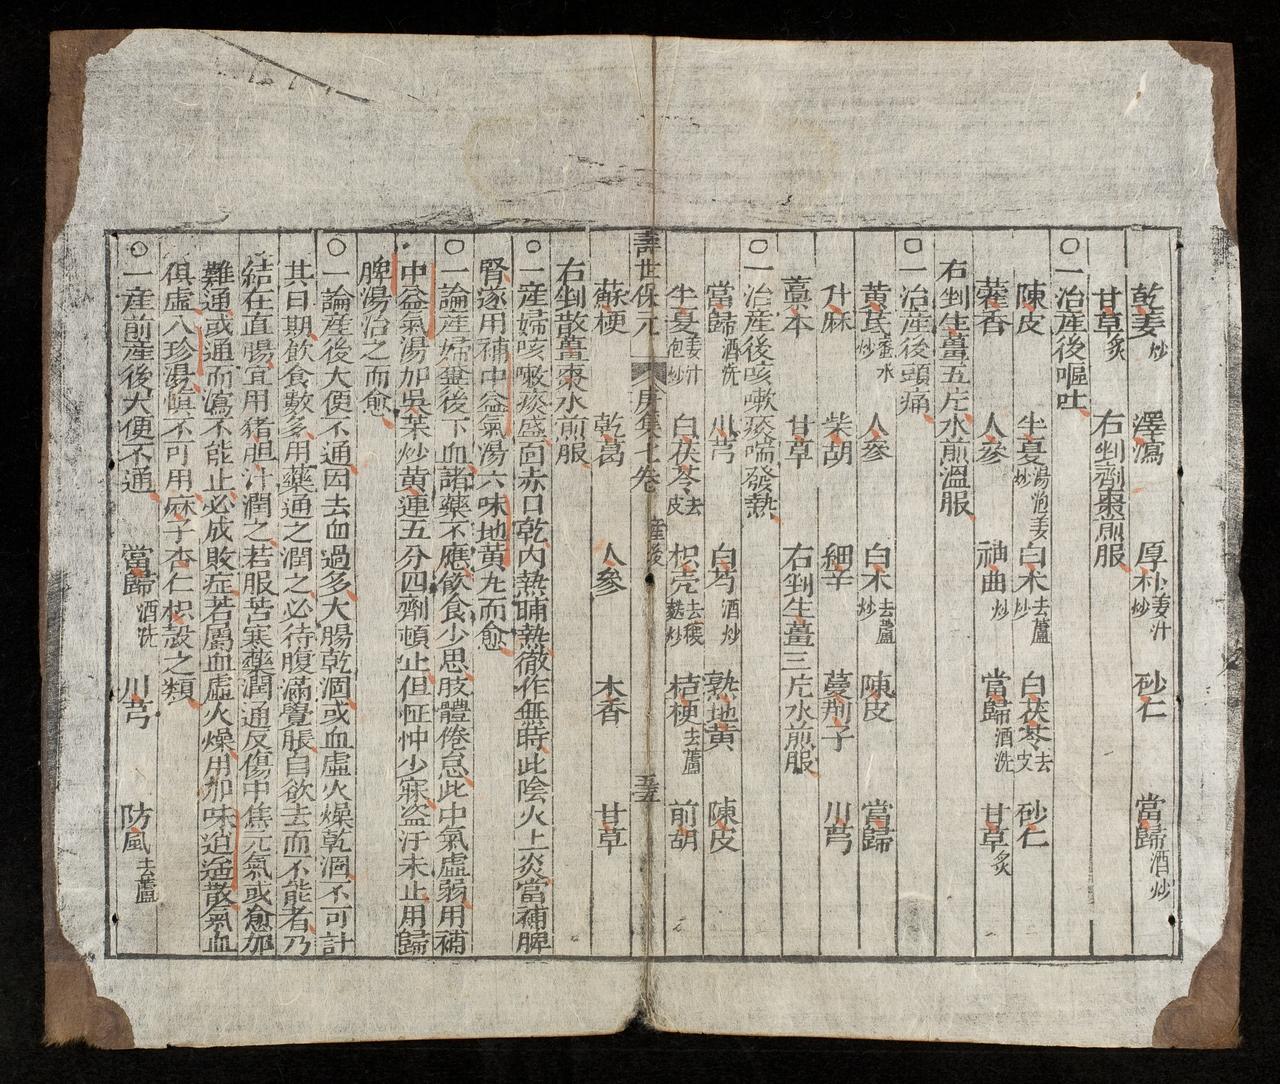 乾姜炒 澤瀉 厚朴姜汁炒 砂仁 當歸酒炒
甘草炙 右剉劑棗煎服
〇一治產後嘔吐
陳皮 半夏湯泡姜炒 白术去蘆炒 白茯苓去皮 砂仁
藿香 人參 神曲炒 當歸酒洗 甘草炙
右剉生薑五片水煎溫服
〇一治產後頭痛
黃芪蜜水炒 人參 白术去蘆炒 陳皮 當歸
升麻 柴胡 細辛 蔓荊子 川芎
藁本 甘草 右剉生薑三片水煎服
〇一治產後咳嗽痰喘發熱
當歸酒洗 川芎 白芍酒炒 熟地黃 陳皮
半夏姜汁泡炒 白茯苓去皮 枳壳去穰麩炒 桔梗去蘆 前胡
壽世保元 庚集七卷 產後 五五
蘇梗 乾葛 人參 木香 甘草
右剉散薑棗水煎服
〇一產婦咳嗽痰盛面赤口乾內熱晡熱徹作無時此陰火上炎當補脾
腎遂用補中益氣湯六味地黃九而愈
〇一論產婦糞後下血諸藥不應飲食少思肢體倦怠此中氣虛弱用補
中益氣湯加吳茱炒黃連五分四劑頓止但怔忡少寐盜汗未止用歸
脾湯治之而愈
〇一論產後大便不通因去血過多大腸乾涸或血虛火燥乾涸不可計
其日期飲食數多用藥通之潤之必待腹滿覺脹自欲去而不能者乃
結在直腸宜用猪胆汁潤之若服苦寒藥潤通反傷中焦元氣或愈加
難通或通而瀉不能止必成敗症若屬血虛火燥用加味逍遙散氣血
俱虛八珍湯慎不可用麻子杏仁枳殼之類
〇一產前產後大便不通 當歸酒洗 川芎 防風去蘆